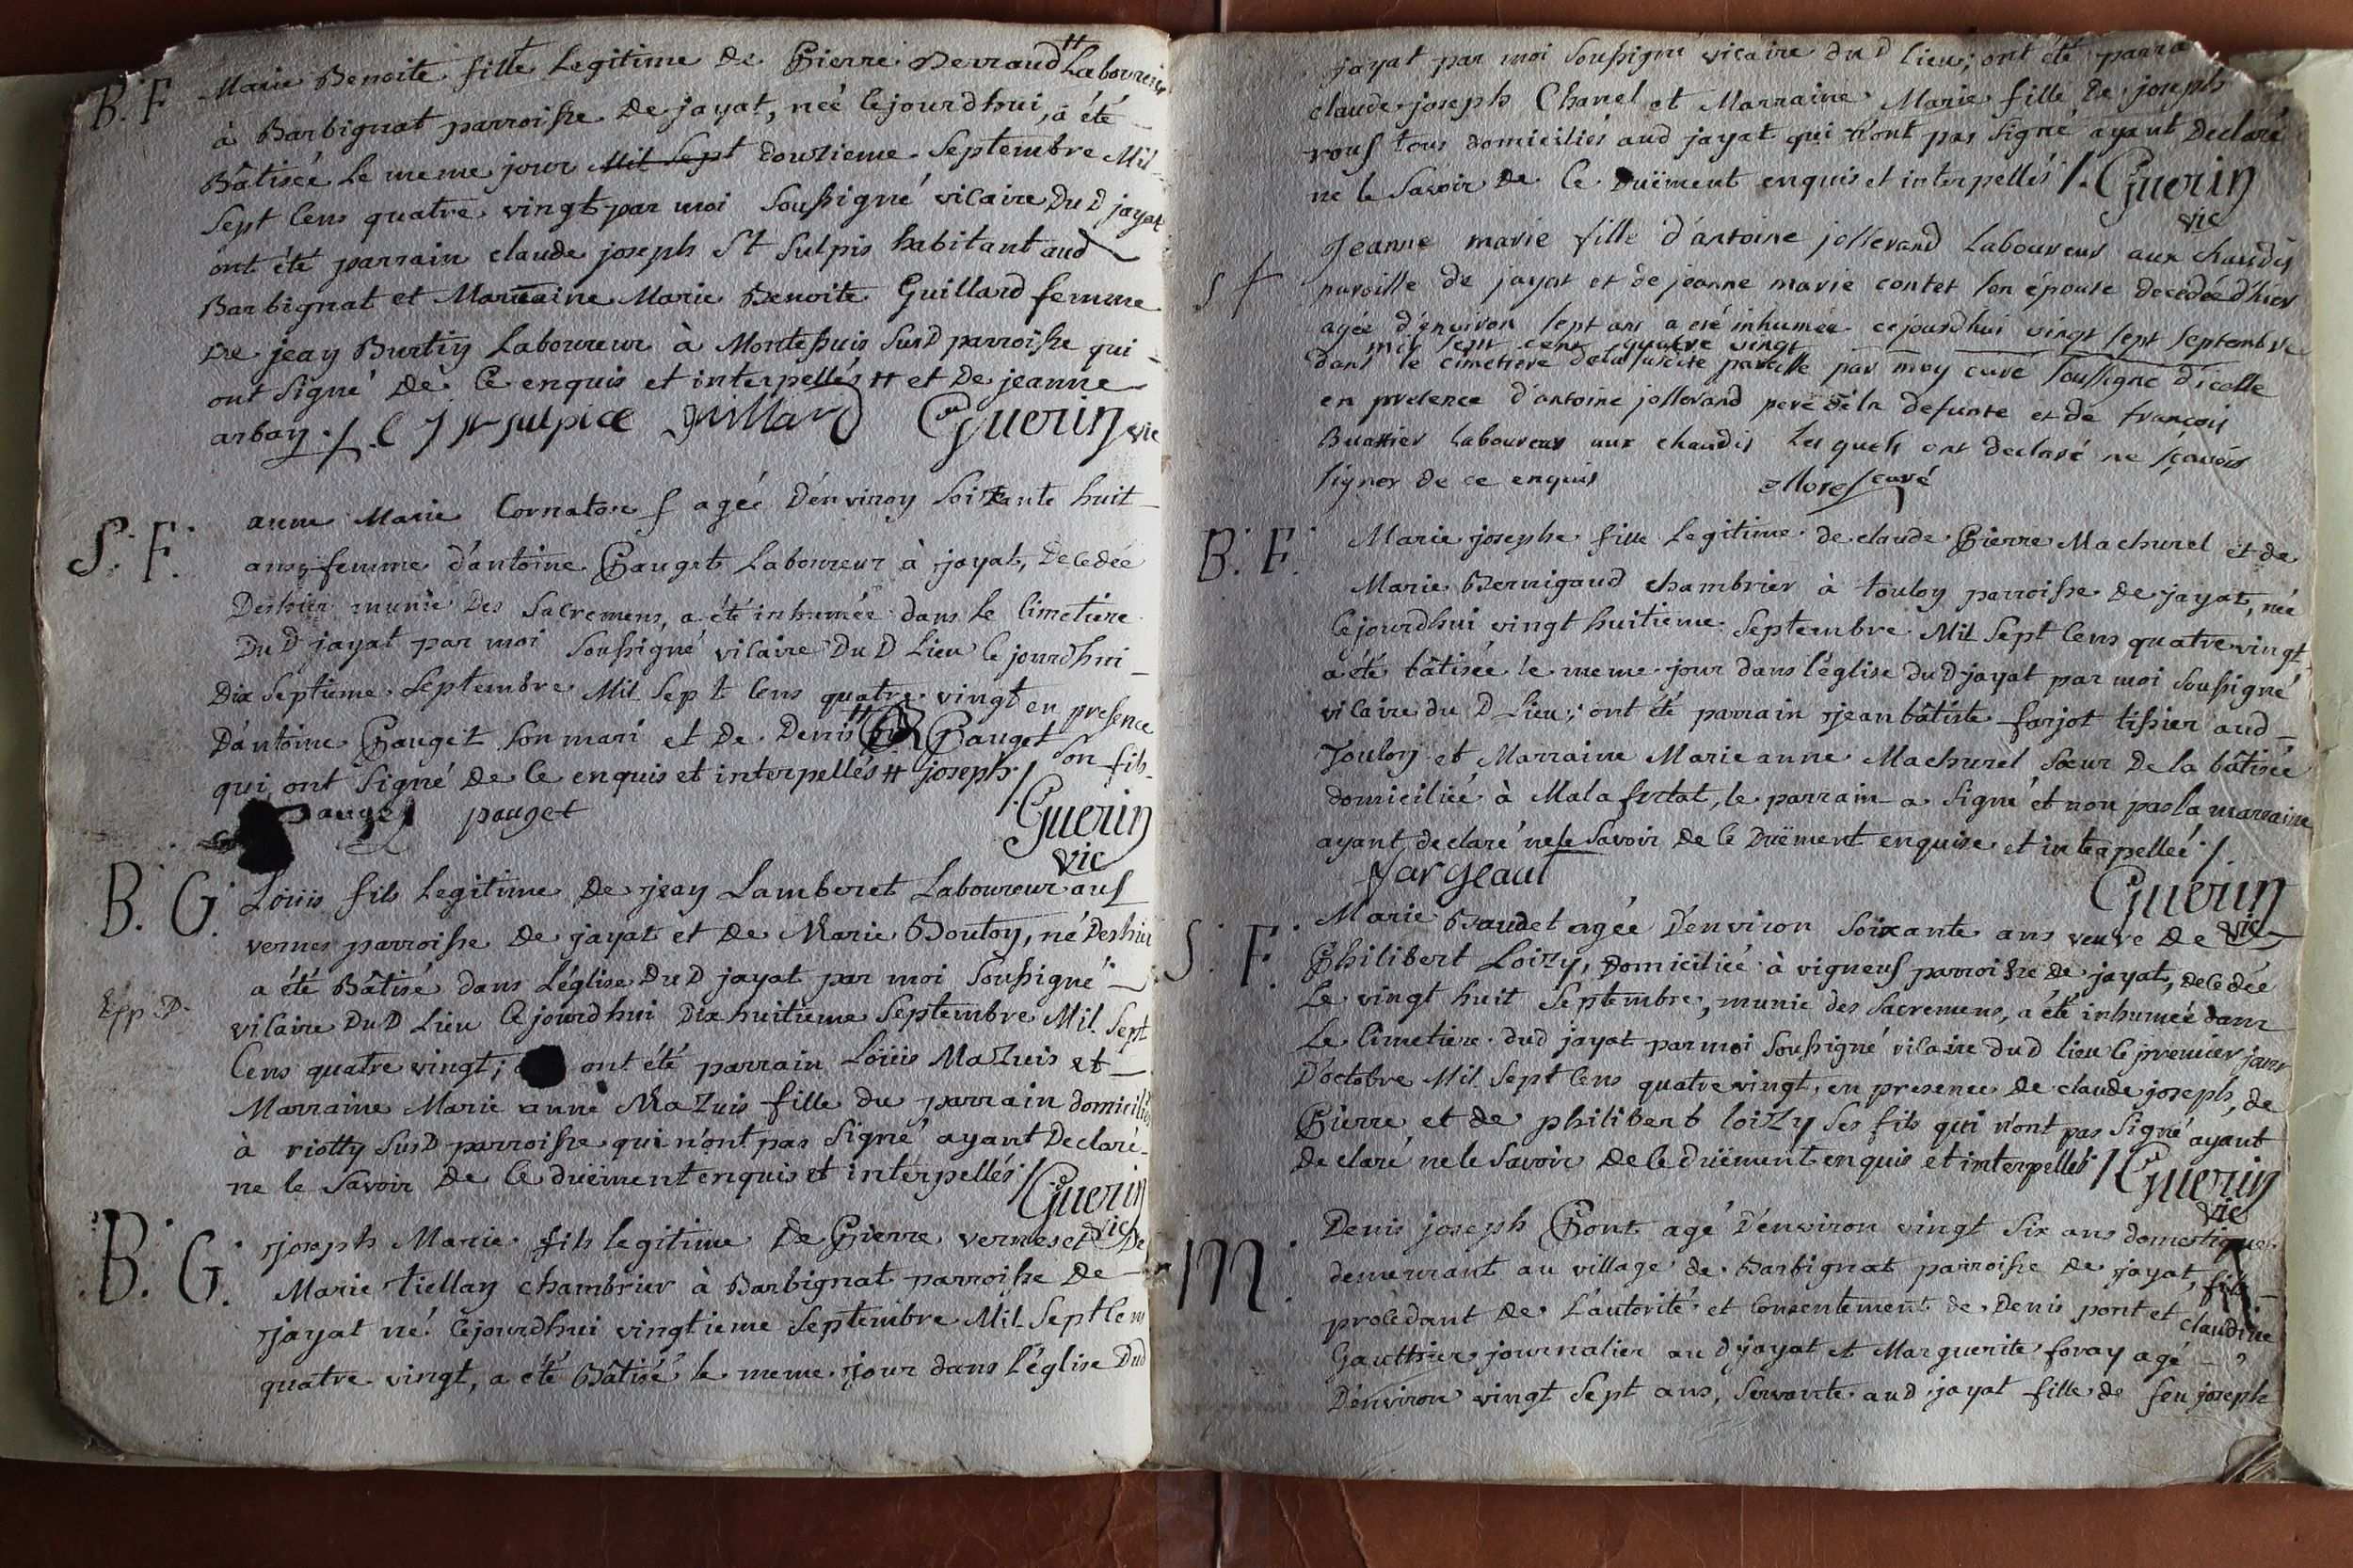 B. F. Marie Benoite fille Legitime de Pierre Devraud # Laboureur
à Barbignat parroisse de jayat, neé cejourdhui, a été
Bâtisée le meme jour Mil Sept douzieme Septembre Mil
Sept Cens quatre vingt par moi Soussigné vicaire du D jayat
ont été parrain claude joseph St Sulpis habitant aud
Barbignat et Marraine Marie Benoite Guillard femme
De jean Burtin Laboureur à Montepuis Sus D parroisse qui
ont Signé de Ce enquis et interpellés # et De jeanne
arban ./. C J St Sulpice guillard Guerin vic
S. F. anne Marie Cornaton f agée D'environ Soixante huit
ans femme d'antoine Pauget Laboureur à jayat, Decedée
Des hier munie Des Sacremens, a été inhumée dans le Cimetiere
Du D jayat par moi Soussigné vicaire Du D Lieu Cejourdhui
Dix Septieme Septembre Mil Sept Cens quatre vingt en presence
D'antoine Pauget Son mari et De Denis # Pauget Son fils
qui ont Signé De Ce enquis et interpellés # joseph ./.
Pauget pauget Guerin
vic
B. G. Loüis fils Legitime De jean Lamberet Laboureur aus
vernes parroisse De jayat et De Marie Bouton, né Des hier
a été Bâtisé dans L'église Du D jayat par moi Soussigné
vicaire Du D Lieu Cejourdhui Dix huitieme Septembre Mil Sept
Cens quatre vingt; ont été parrain Loüis Mazuis et
Marraine Marie anne Mazuis fille du parrain domiciliés
à riotty Sus D parroisse qui n'ont pas Signé ayant Declaré
ne le Savoir De Ce duëment enquis et interpellés ./. Guerin
vic
B. G. joseph Marie fils legitime De Pierre vernes et De
Marie Tiellan chambrier à Barbignat parroisse De
jayat né cejourdhui vingtieme Septembre Mil Sept Cens
quatre vingt, a été Bâtisé le meme jour dans l'église Dud
jayat par moi Soussigné vicaire du D lieu; ont été parra
claude joseph Chanel et Marraine Marie fille De joseph
rous tous domiciliés aud jayat qui n'ont pas Signé ayant Declaré
ne le Savoir De Ce Duëment enquis et interpellés ./. Guerin
vic
S f Jeanne marie fille d'antoine jollerand Laboureur aux chaudis
paroisse de jayat et de jeanne marie contet son épouse decedée d'hier
agée d'environ sept ans a eté inhumée cejourdhui vingt sept septembre
mil sept cent quatre vingt
dans le cimetiere de la susdite paroisse par moy curé soussigné d'icelle
en presence d'antoine jollerand pere de la defunte et de françois
Buattier Laboureur aux chaudis Lesquels ont declaré ne sçavoir
signer de ce enquis Morel curé
B. F. Marie josephe fille Legitime de claude Pierre Machurel et de
Marie Bernigaud chambrier à toulon parroisse De jayat, née
Cejourdhui vingt huitieme Septembre Mil Sept Cens quatre vingt
a été bâtisée le meme jour dans l'église du D jayat par moi Soussigné
vicaire du D Lieu; ont été parrain jean bâtiste farjot tissier aud
Toulon et Marraine Marie anne Machurel Sœur De la bâtisée
domiciliée à Malafretat, le parrain a Signé et non pas la marraine
ayant declaré ne le Savoir de Ce Duëment enquise et interpellée ./.
fargeaut Guerin
vic
S. F. Marie Baudet agée D'environ Soixante ans veuve De
Philibert Loizy, Domiciliée à vigneus parroisse De jayat, decedée
Le vingt huit Septembre, munie des Sacremens, a été inhumée dans
Le Cimetiere dud jayat par moi Soussigné vicaire du D lieu le premier jour
D'octobre Mil Sept Cens quatre vingt, en presence De claude joseph, de
Pierre et de philibert loizy Ses fils qui n'ont pas Signé ayant
declaré ne le Savoir De Ce duëment enquis et interpellés ./. Guerin
vic
M. Denis joseph Pont agé D'environ vingt Six ans domestique
demeurant au village de Barbignat parroisse De jayat, fils
procedant de L'autorité et Consentement de Denis pont et claudine
Gauthier journalier au D jayat et Marguerite foray agé
D'environ vingt Sept ans, Servante aud jayat fille de feu joseph